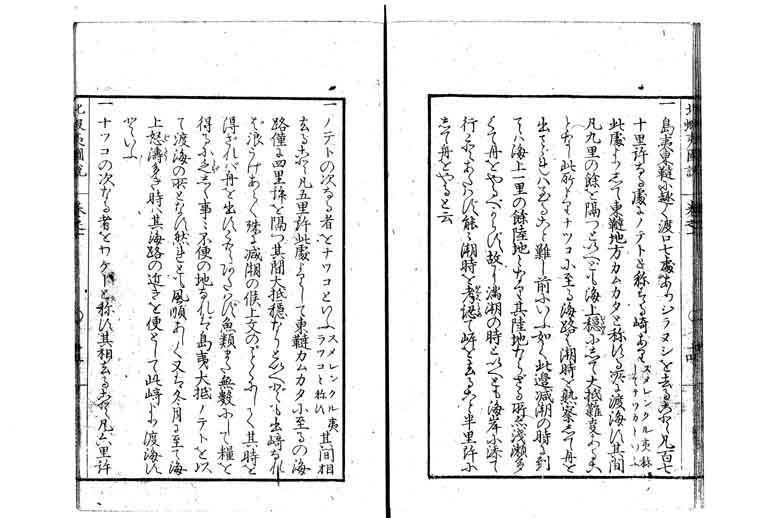 一 島夷東韃に趣く渡口七處ありシラヌシを去る事凡百七
十里許なる處にノテトと称する崎あり スメレンクル夷称してナツカといふ
此處よりして東韃地方カムカタと称する處に渡海す其間
凡九里の餘を隔つといへども海上穏にして大抵難事ある事
なし此所よりナツコに至る海路は潮時を熟察して舟を
出されば至る事難し前にいふ如く此邊減潮の時に到
ては海上一里の餘陸地となり其陸地ならざる所も浅瀬多
くて舟をやるべからず故に満潮の時といへども海岸に添て
行事あたはず能々潮時を考認て岬を去る事半里許に
して舟をやると云
一 ノテトの次なる者をナツコといふ スメレンクル夷ラツコと称す 其間相
去る事凡五里許此處よりして東韃カムカタに至るの海
路僅に四里許を隔つ其間大抵穏なりといへども出崎なれ
ば浪うけあらく殊に減潮の候上文のごとくにして其時を
得ざれば舟を出す事あたはず魚類また無數にして糧を
得るに乏しく事々不便の地なれば島夷大抵ノテトを以
て渡海の所となす然れども風順あしく又は冬月に至て海
上怒濤多き時は其海路の近きを便として此崎より渡海す
といふ
一 ナツコの次なる者をワゲーと称す其相去る事凡六里許
北蝦夷圖説 巻之一